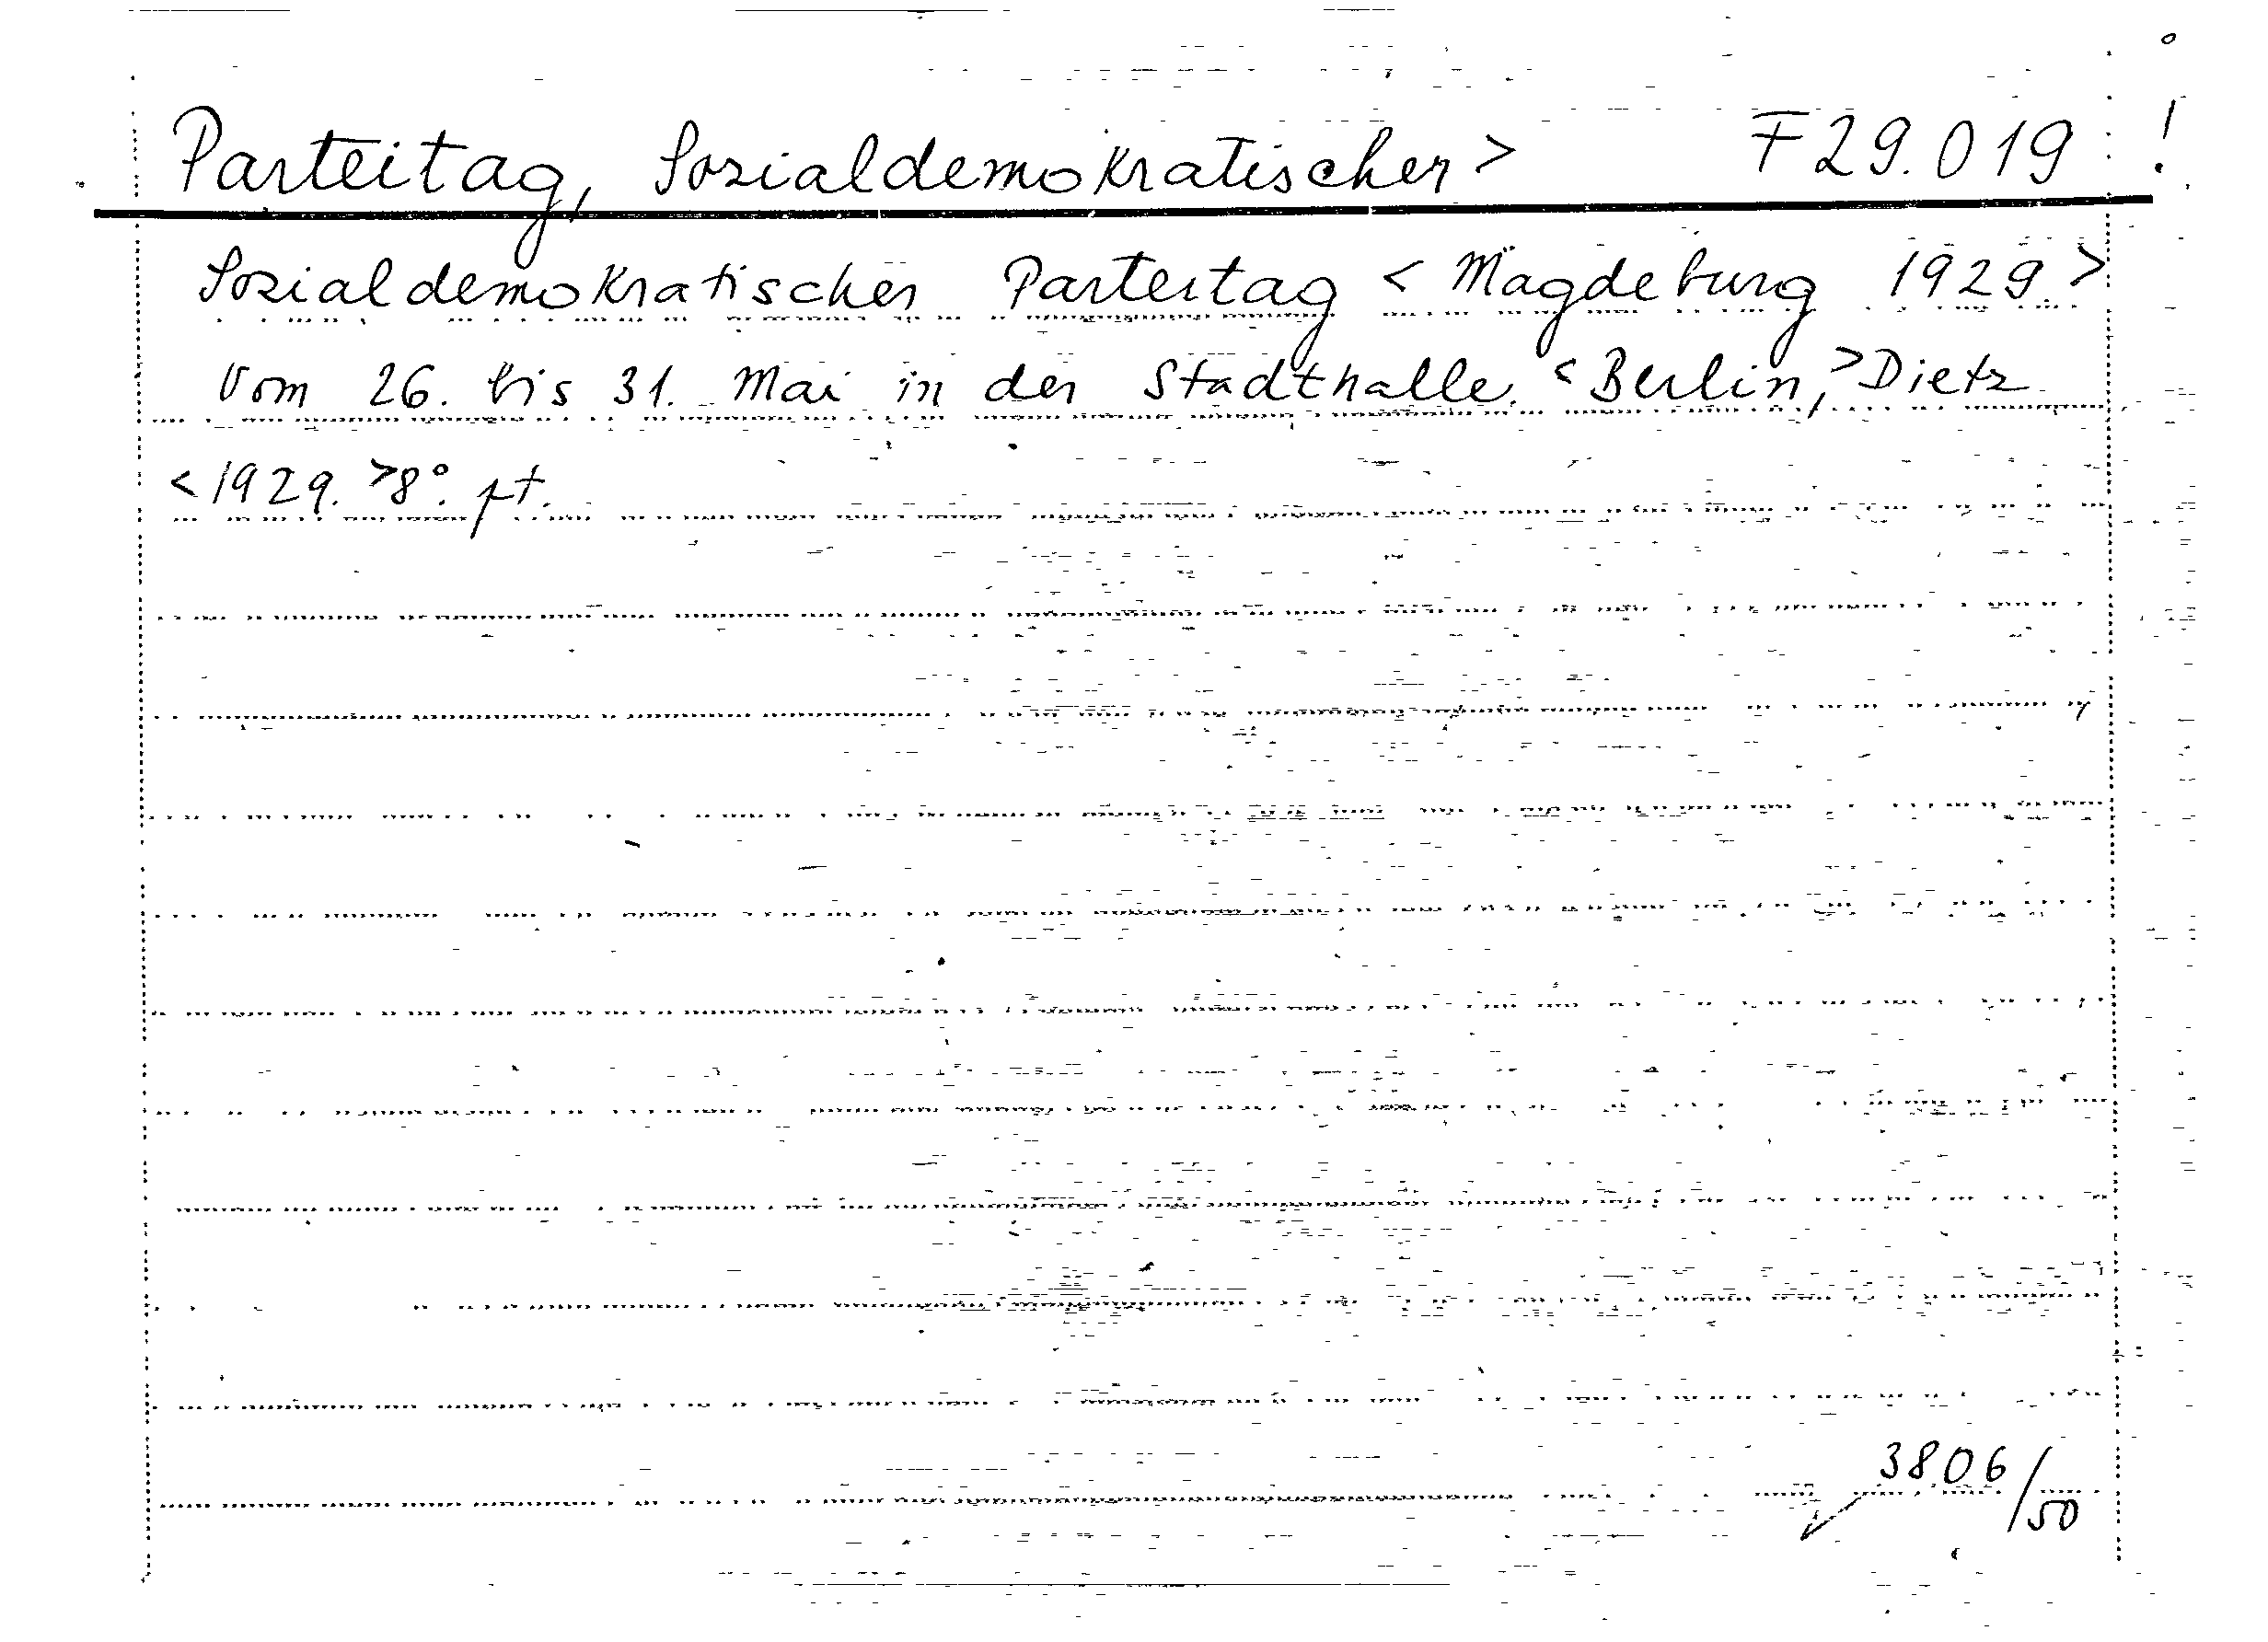 Parteitag, Sozialdemokratischer> F29.019 !
Sozialdemokratischer Parteitag <Magdeburg 1929.>
Vom 26. bis 31. Mai in der Stadthalle. <Berlin,> Dietz
<1929.> 8°. pt.
3806/50